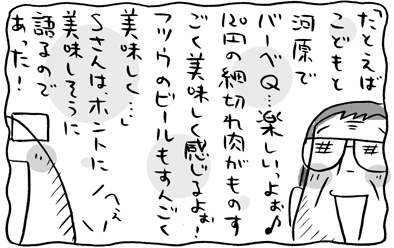 「たとえば
こどもと
河原で
バーベQ…楽しいっよぉ♪
120円の細切れ肉がものす
ごく美味しく感じるよぉ！
フツウのビールもすんごく
美味しく…」
Sさんは、ホントに
美味しそうに
語るので
あった！
へぇー